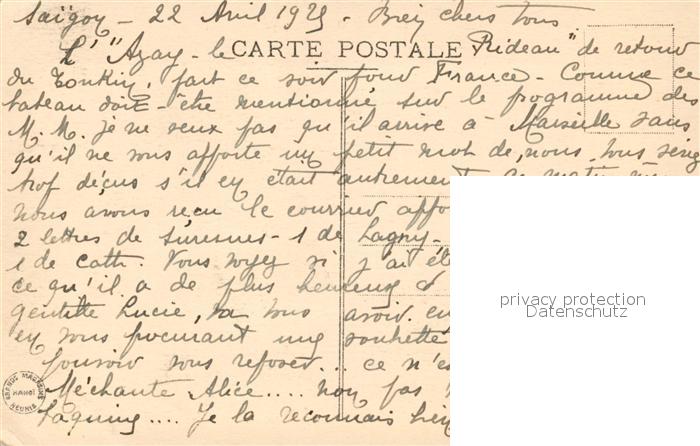 Saïgon - 22 Avril 1925 - Bien chers tous
L' "Azay - le Rideau" de retour
CARTE POSTALE
du Tonkin, part ce soir pour France - Comme ce
bateau doit - être mentionné sur le programme des
M. M. je ne veux pas qu'il arrive à Marseille sans
qu'il ne vous apporte un petit mot de nous. Vous seriez
trop déçus s'il en était autrement
nous avons reçu le courrier
2 lettres de Suresnes - 1 de Lagny -
1 de Cath. Vous voyez si j'ai
ce qu'il a de plus heureux
gentille Lucie, va vous avoir
en vous procurant une
pouvoir vous reposer... ce n'
Méchante Alice.... non pas
taquine.... Je la reconnais bien
privacy protection
Datenschutz
HANOI